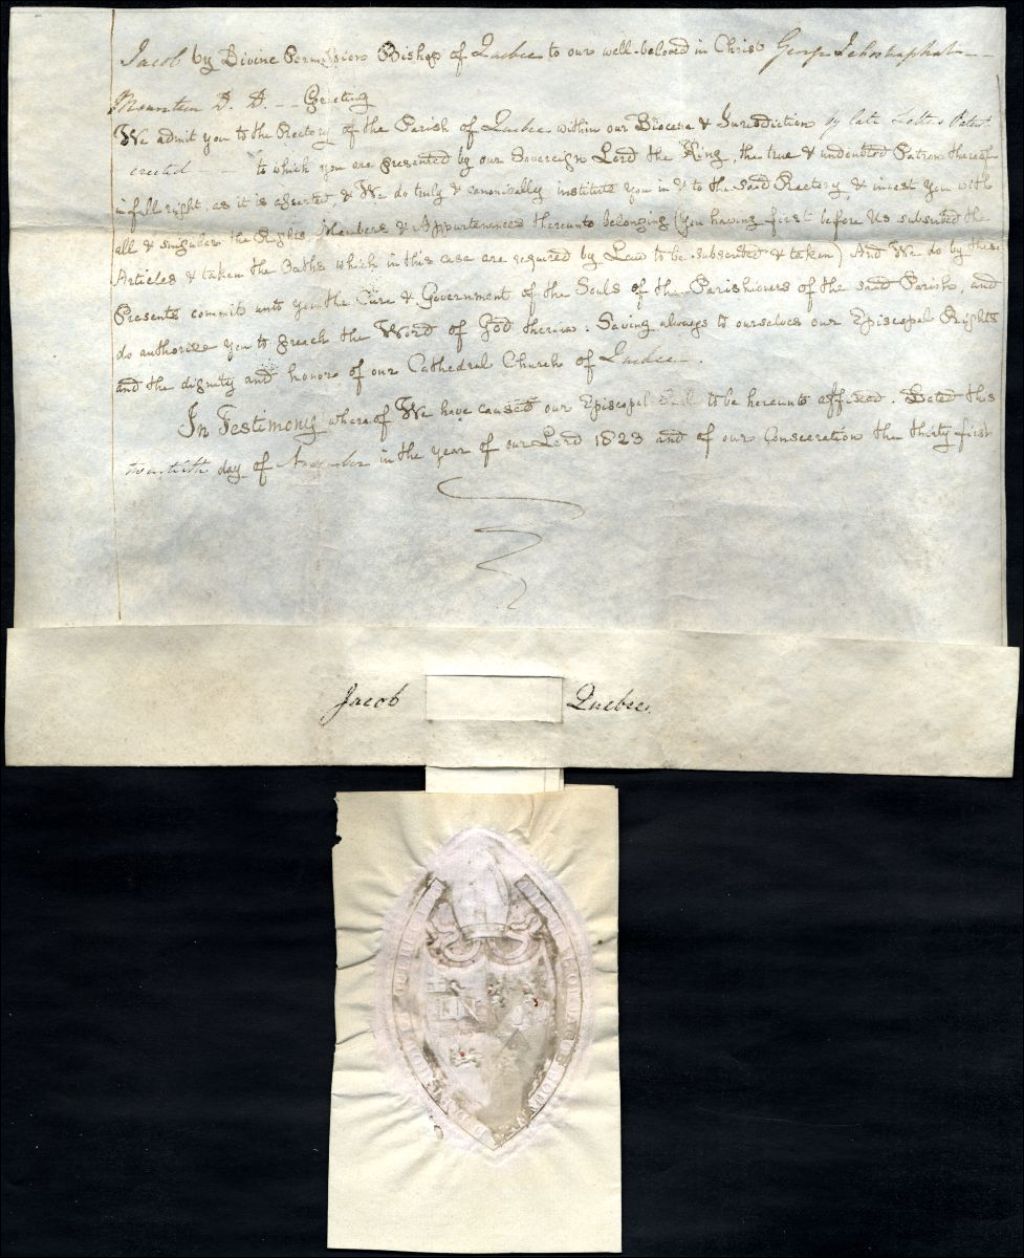 Jacob by Divine Permission Bishop of Quebec to our well-beloved in Christ George Jehoshaphat
Mountain D. D. -- Greeting
We admit you to the Rectory of the Parish of Quebec within our Diocese & Jurisdiction by late Letters Patent
erected -- to which you are presented by our Sovereign Lord the King, the true & undoubted Patron thereof
in full right, as it is asserted, & We do truly & canonically institute you in & to the said Rectory, & invest you with
all & singular the Rights Members & Appurtenances thereunto belonging (you having first before Us subscribed the
Articles & taken the Oaths which in this case are required by Law to be subscribed & taken) And We do by these
Presents commit unto you the Cure & Government of the Souls of the Parishioners of the said Parish, and
do authorise you to preach the Word of God therein: Saving always to ourselves our Episcopal Rights
and the dignity and honor of our Cathedral Church of Quebec.
In Testimony whereof We have caused our Episcopal Seal to be hereunto affixed. Dated this
twentieth day of November in the year of our Lord 1823 and of our Consecration the thirty first
Jacob Quebec.